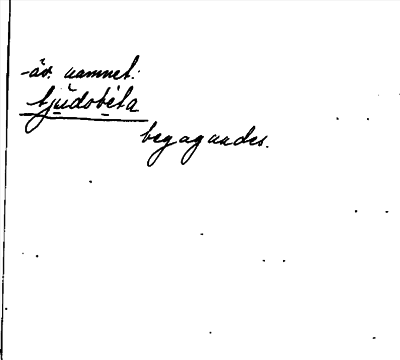 -äv. namnet:
tjudobeta
begagnades.